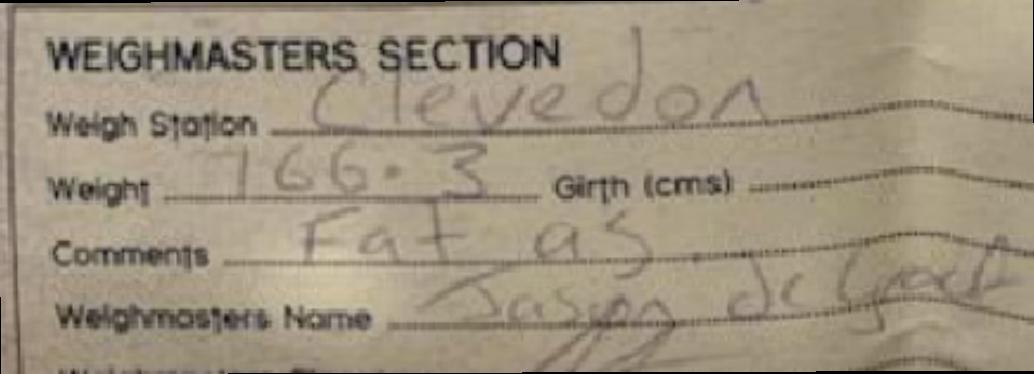 WEIGHMASTERS SECTION
Weigh Station Clevedon
Weight 166.3 Girth (cms)
Comments Fat as
Weighmasters Name Jason de Groot